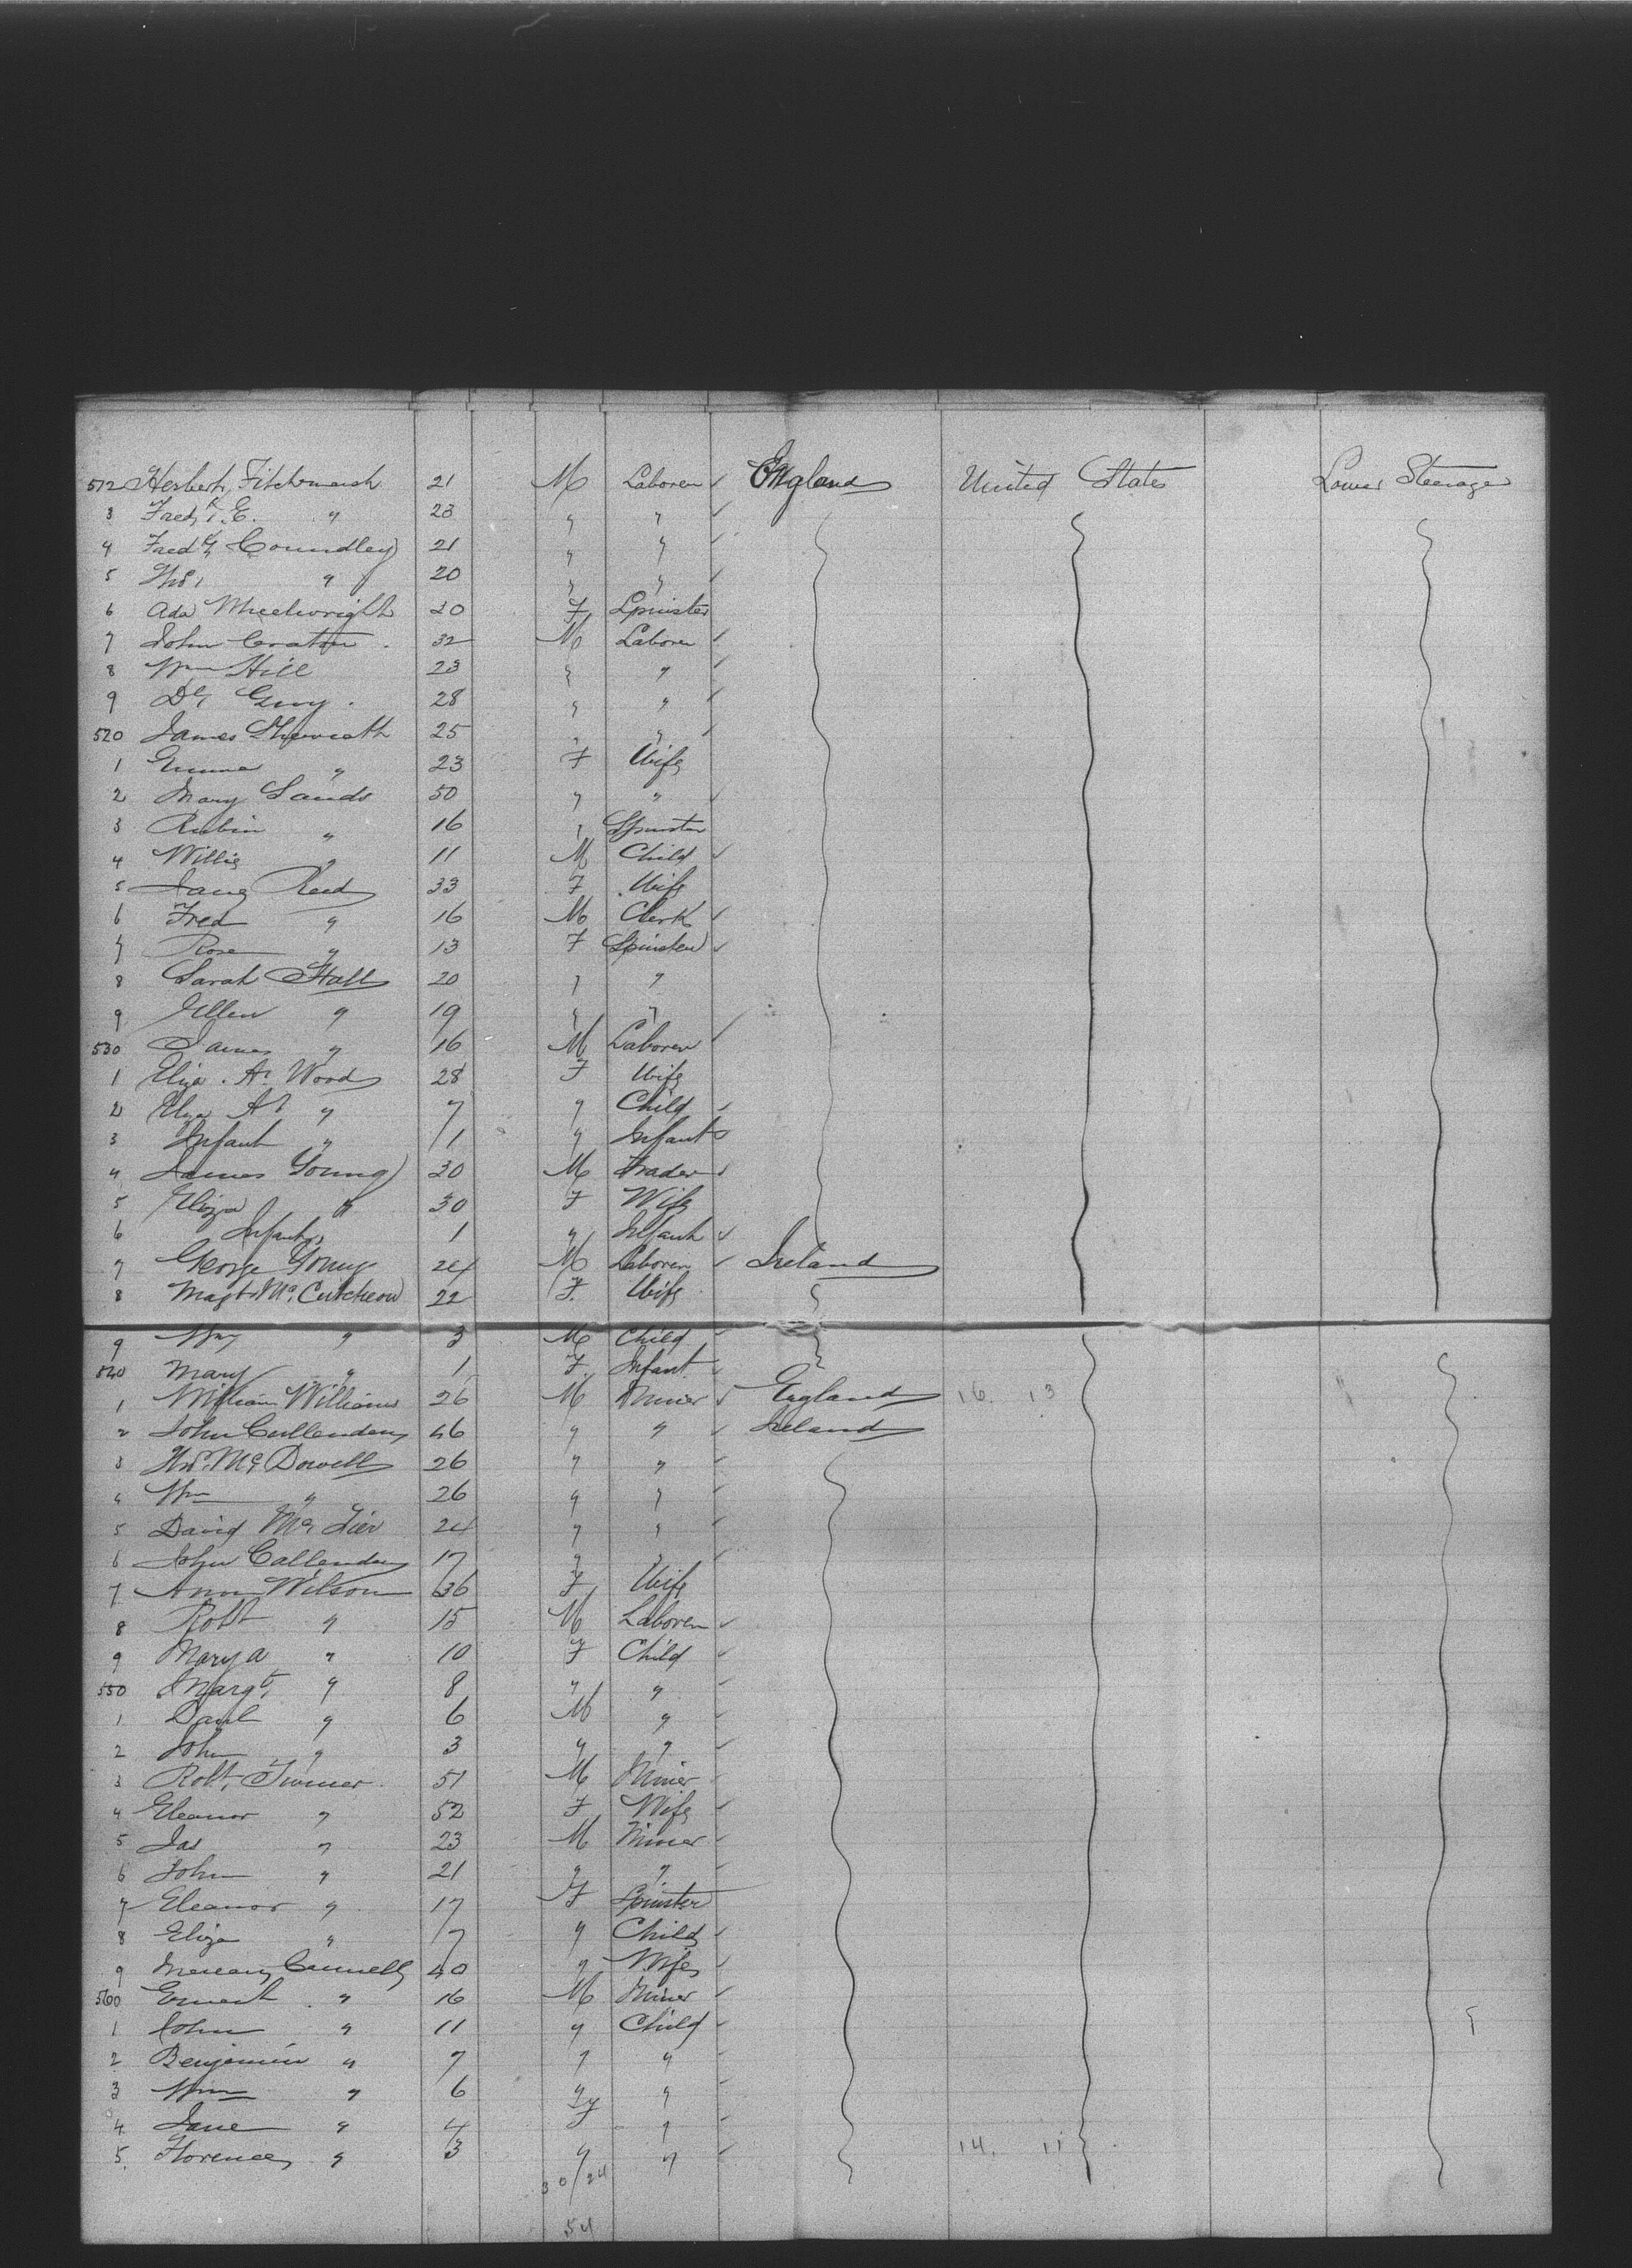 512 Herbert Titchmarsh 21 M Laborer England United States Lower Steerage
3 Fredk E. " 23 " "
4 Fredk Coundley 21 " "
5 Thos " 20 " "
6 Ada Wheelwright 20 F Spinster
7 John 32 M Laborer
8 Wm Hill 23 " "
9 Guy 28 " "
520 James 25 " "
1 Emma " 23 F Wife
2 Mary Sands 50 " "
3 Rubin " 16 " Spinster
4 Willie " 11 M Child
5 Jane Reed 33 F Wife
6 Fred " 16 M Clerk
7 Rose " 13 F Spinster
8 Sarah Hall 20 " "
9 Ellen " 19 " "
530 James " 16 M Laborer
1 Eliza A. Wood 28 F Wife
2 Eliza A. " 7 " Child
3 Infant " 1 " Infant
4 James Young 30 M Trader
5 Eliza " 30 F Wife
6 Infant " 1 " Infant
7 George Young 24 M Laborer Ireland
8 Magt McCutcheon 22 F. Wife
9 Wm " 3 M Child
540 Mary " 1 F. Infant
1 William Williams 26 M Miner England 16. 13
2 John Cullenden 46 " " Ireland
3 Thos. McDowell 26 " "
4 Wm " 26 " "
5 David Mc 24 " "
6 John Callenden 17 " "
7 Ann Wilson 36 F Wife
8 Robt " 15 M Laborer
9 Mary A " 10 F Child
550 Margt " 8 " "
1 Danl " 6 M "
2 John " 3 " "
3 Robt. Turner 51 M Miner
4 Eleanor " 52 F Wife
5 Jas " 23 M Miner
6 John " 21 " "
7 Eleanor " 17 F Spinster
8 Eliza " 7 " Child
9 40 " Wife
560 Ernest " 16 M Miner
1 John " 11 " Child
2 Benjamin " 7 " "
3 Wm " 6 " "
4 Jane " 4 F "
5. Florence " 3 " " 14. 11
30/24
54